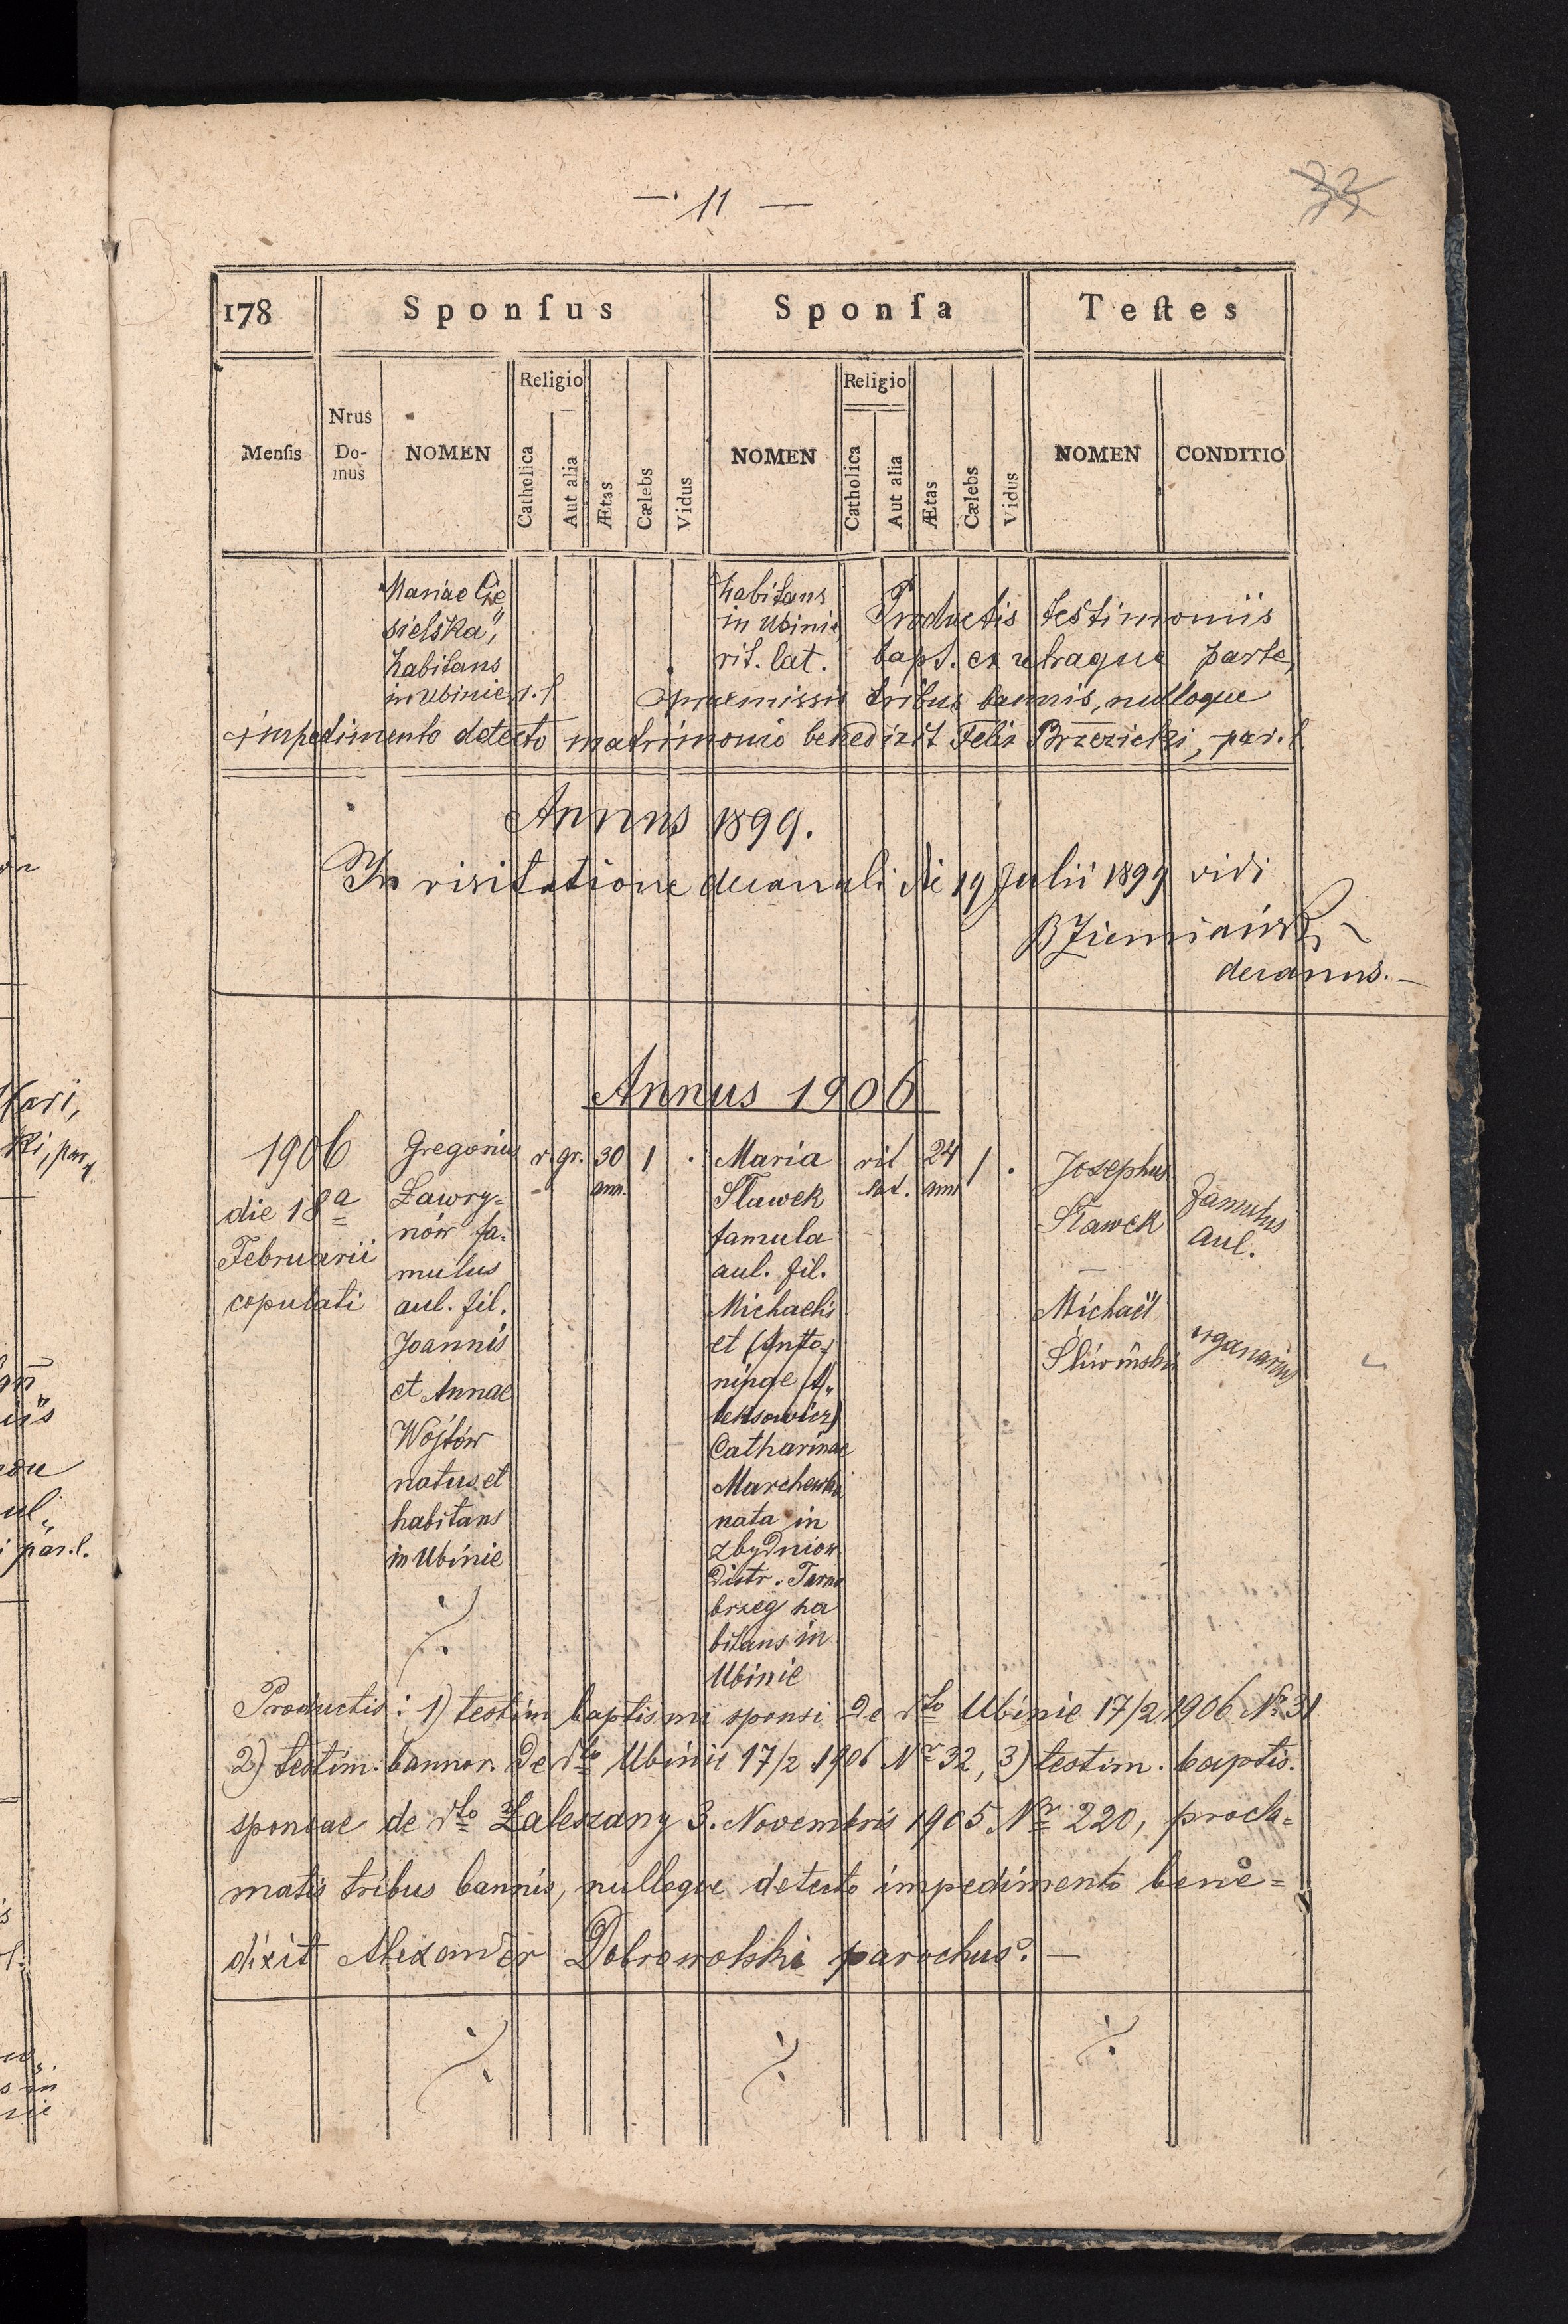 — 11 —
33
178 Sponſus Sponſa Teſtes
Menſis Nrus Do-mus NOMEN Religio Catholica Aut alia Ætas Cælebs Vidus NOMEN Religio Catholica Aut alia Ætas Cælebs Vidus NOMEN CONDITIO
Mariae Cie
sielska",
habitans
in Ubinie, r. l
habitans
in Ubinie
rit. lat.
Productis testimoniis
bapt. ex utraque parte,
praemissis tribus bannis, nulloque
impedimento detecto matrimonio benedixit Felix Brzezicki, par. l.
Annus 1899.
In visitatione decanali die 19 Julii 1899 vidi
decanus.—
Annus 1906
1906
die 18a
Februarii
copulati
Gregorius
Ławry=
nów fa=
mulus
aul. fil.
Joannis
et Annae
Wojtów
natus et
habitans
in Ubinie
r. gr.
30
ann.
1
.
Maria
Sławek
famula
aul. fil.
Michaelis
et (Anto=
ninae A„
leksowicz)
Catharinae
Marchewka
nata in
Zbydniow
Distr. Tarno
brzeg ha
bitans in
Ubinie
rit
lat.
24
ann
1
.
Josephus
Sławek
—
Michaël
Śliwiński
famulus
aul.
organarius
Productis: 1) testim baptismi sponsi de dto Ubinie 17/2 1906 Nr 31
2) testim. bannor. de dto Ubinie 17/2 1906 Nr 32, 3) testim. baptis.
sponsae de dto Zaleszany 3. Novembris 1905 Nr 220, procla=
matis tribus bannis, nulloque detecto impedimento bene=
dixit Alexander Dobrowolski parochus. —